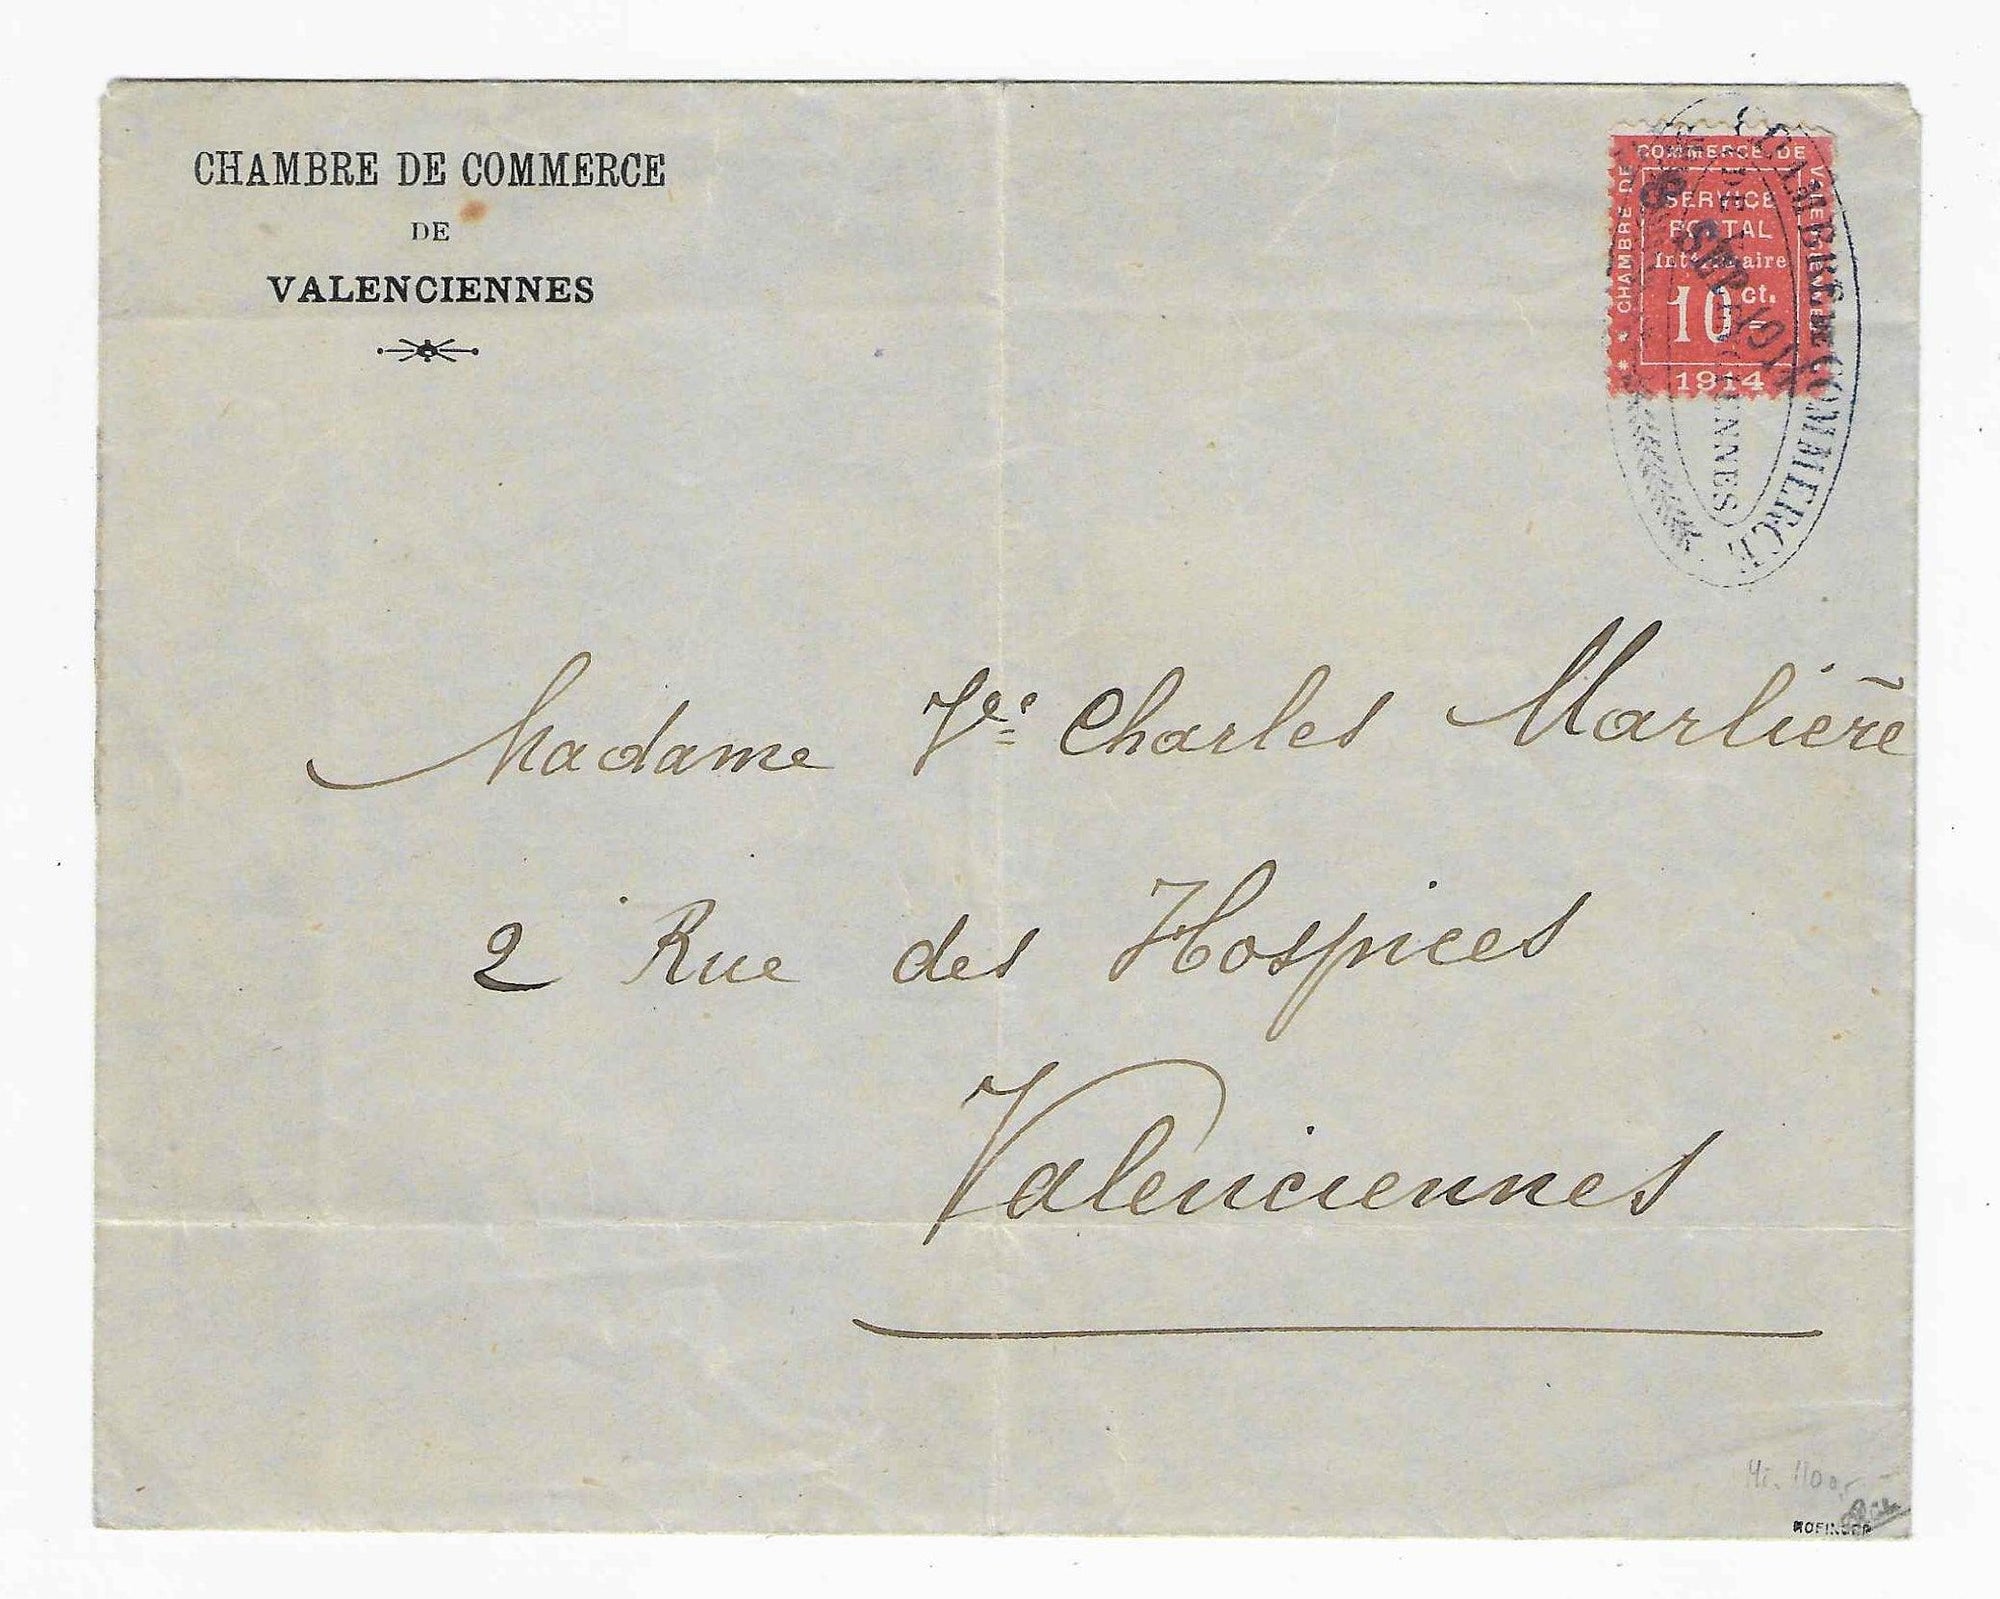 CHAMBRE DE COMMERCE
DE
VALENCIENNES
COMMERCE DE
CHAMBRE DE
VALENCIENNES
SERVICE
POSTAL
Intérimaire
10 ct.
1914
CHAMBRE DE COMMERCE
DE VALENCIENNES
8 SEP
Madame Vve Charles Marlière
2 Rue des Hospices
Valenciennes
Mi. 1100,-